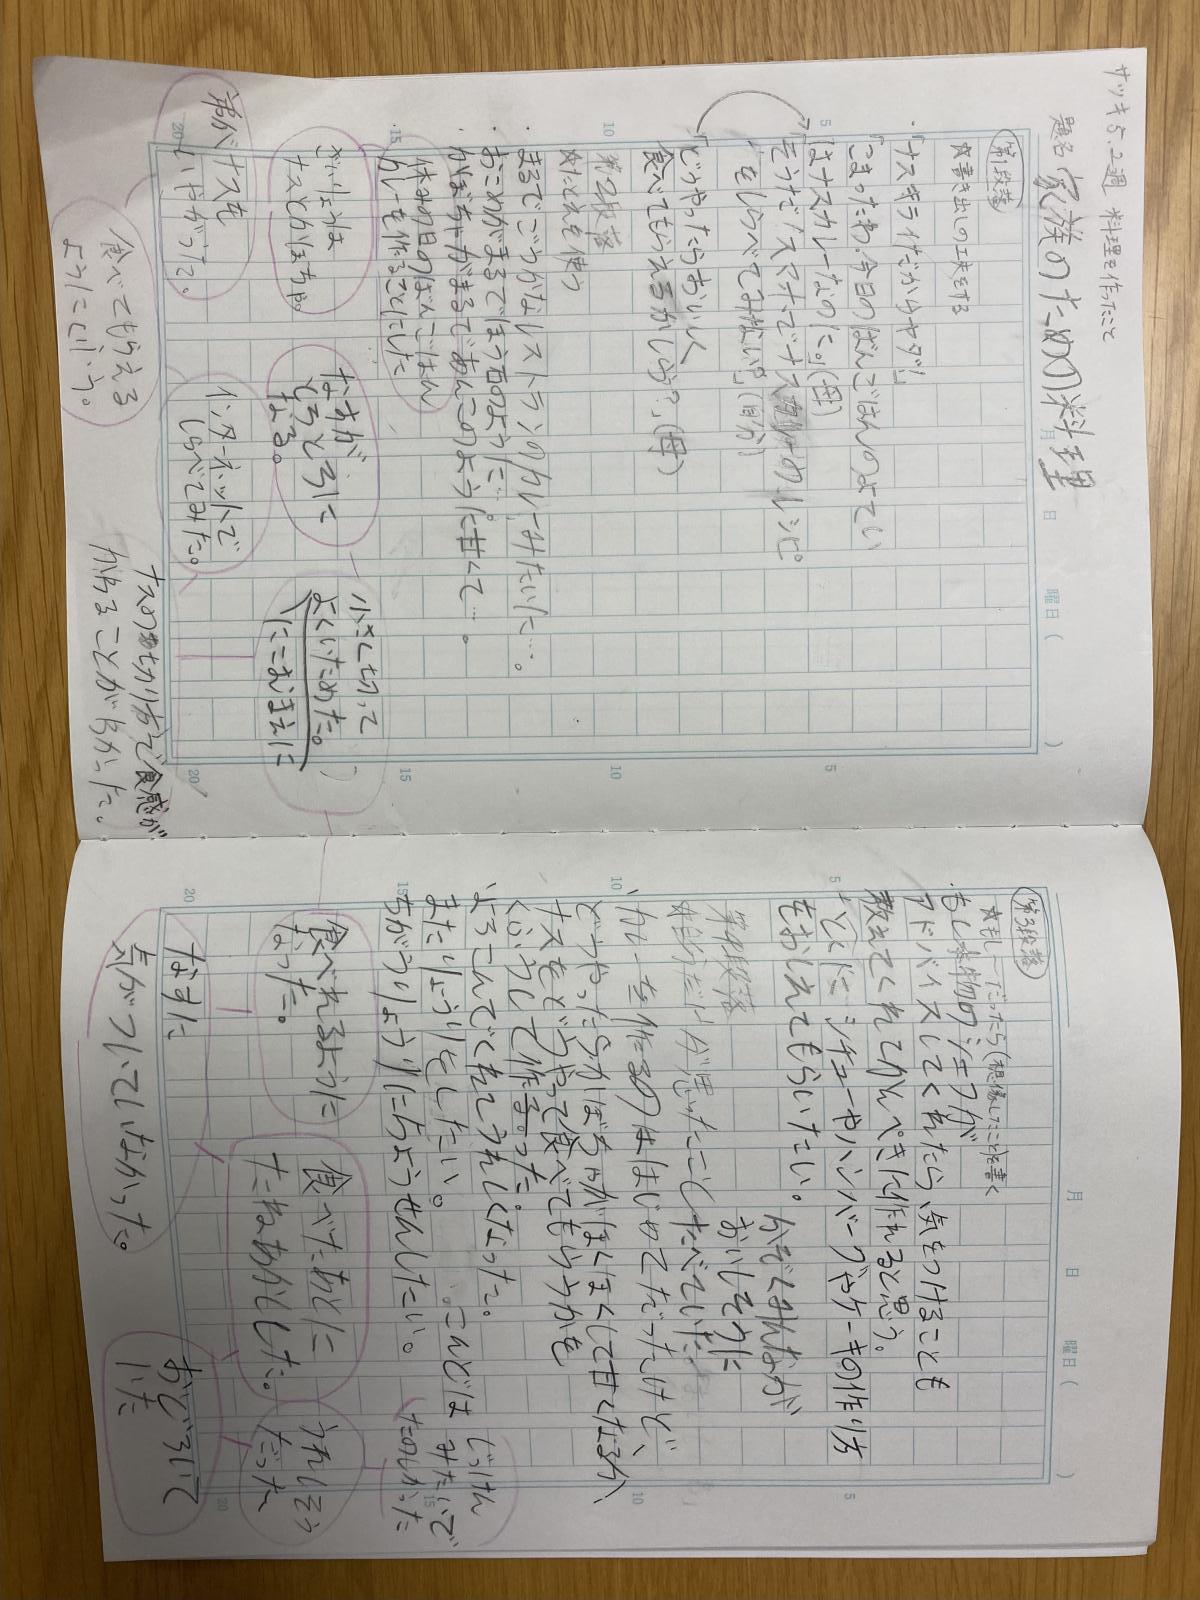 サツキ5.2週 料理を作ったこと
題名 家族のための料理
月 日 曜日( )
第1段落
☆書き出しの工夫をする
・「ナスキライだからヤダ!」
「こまったわ。今日のばんごはんのよてい
はナスカレーなのに。」(母)
「そうだ!スマホでナス のレシピ
をしらべてみない?」(自分)
「どうやったらおいしく
食べてもらえるかしら?」(母)
第2段落
☆たとえを使う
・まるでごうかなレストランのカレーみたいだ…。
・おこめがまるでほう石のようだ…。
・かぼちゃがまるであんこのように甘くて…。
休みの日のばんごはん
カレーを作ることにした
ざいりょうは
ナスとかぼちゃ。
なすが
とろとろに
なる。
小さく切って
よくいためた。
にこむまえに
弟がナスを
いやがった。
インターネットで
しらべてみた。
食べてもらえる
ように
ナスの切り方で食感が
かわることがわかった。
5
10
15
20
月 日 曜日( )
第3段落
☆もし〜だったら(想像したことを書く
・もし本物のシェフが
アドバイスしてくれたら、気をつけることも
教えてくれてかんぺきに作れると思う。
とくに シチューやハンバーグやケーキの作り方
をおしえてもらいたい。
かぞくみんなが
おいしそうに
たべていた。
第4段落
☆自分だけが思ったこと
カレーを作るのははじめてだったけど、
どうやったらかぼちゃがほくほくして甘くなるか、
ナスをどうやって食べてもらうかを
くふうして作 った。
よろこんでくれてうれしくなった。
またりょうりをしたい。
こんどは
ちがうりょうりにちょうせんしたい。
じっけん
みたいで
たのしかった
食べれるように
なった。
食べたあとに
たねあかしした。
うれしそう
だった
なすに
気がついていなかった。
おどろいて
いた
5
10
15
20